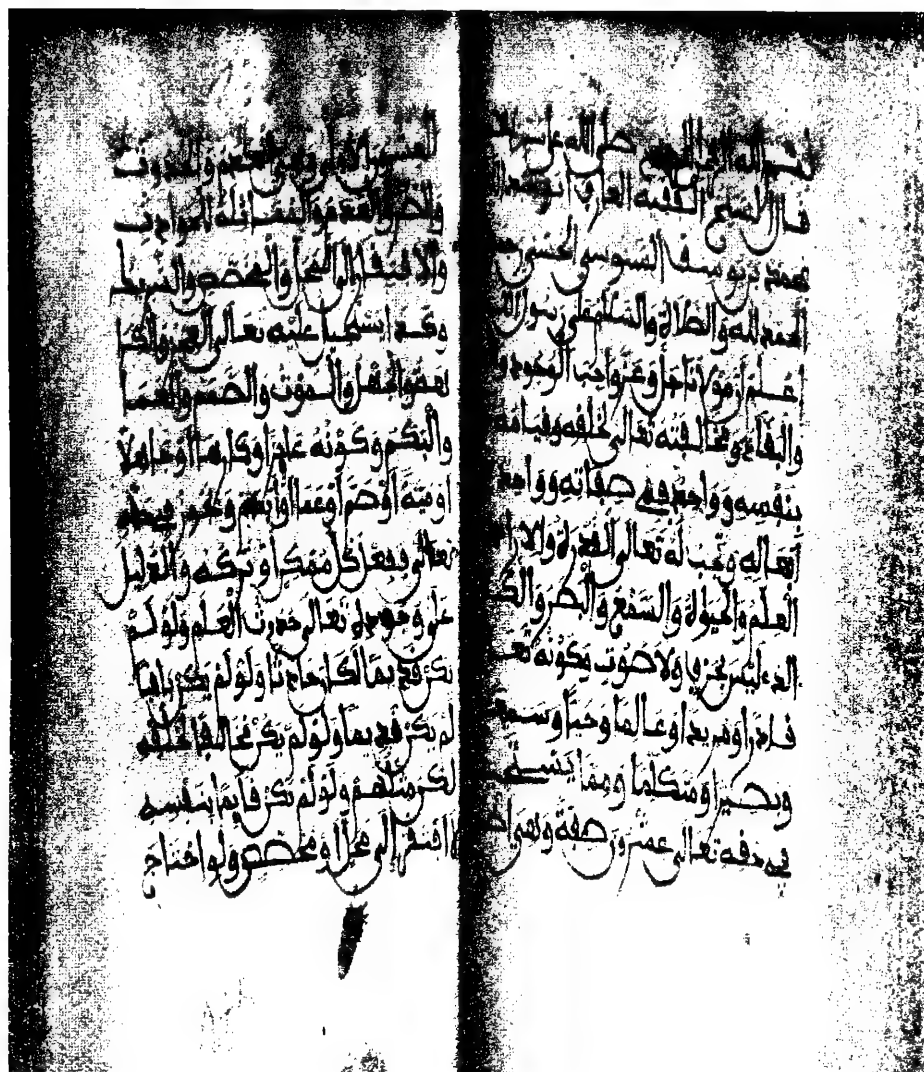 بسم الله الرحمن الرحيم صلى الله على
قال الشيخ الفقيه العالم
محمد بن يوسف السنوسي الحسني
الحمد لله والصلاة والسلام على رسول الله
اعلم أن مولانا جل وعز واجب الوجود و
والبقاء ومخالفته تعالى لخلقه وقيامه
بنفسه وواحد في صفاته وواحد
أفعاله وتجب له تعالى القدرة والارادة
العلم والحيوة والسمع والبصر والكلا
الذي ليس بحرف ولا صوت وكونه تعا
قادرا ومريدا وعالما وحيا وسميعا
وبصيرا ومتكلما ومما يستحيل
في حقه تعالى عشرون صفة وهي
العدم والحدوث
والافتقار إلى المحل والمخصص والشريك
وكذا يستحيل عليه تعالى العجز والكرا
هة والجهل والموت والصمم والعما
والبكم وكونه عاجزا وكارها أو جاهلا
أو ميتا أو أصم أو أعما أو أبكم
تعالى فعل كل ممكن أو تركه والدليل
على وجوده تعالى حدوث العلم ولو لم
يكن قديما لكان حادثا ولو لم يكن باقيا
لم يكن قديما ولو لم يكن مخالفا لخلقه
لكن مثلهم ولو لم يكن قايما بنفسه
لافتقر إلى محل أو مخصص ولو احتاج